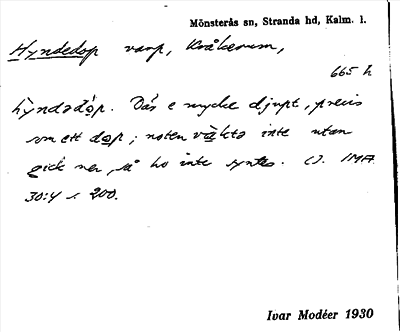 Mönsterås sn, Stranda hd, Kalm. l.
Hyndedop varp, Kråkerum,
665 h
hỳndədóp. Däs e mycke djupt, precis
som ett dop; noten väktə inte utan
gick ner, så ho inte syntes. Cf. IMA
30:4 s. 200.
Ivar Modéer 1930